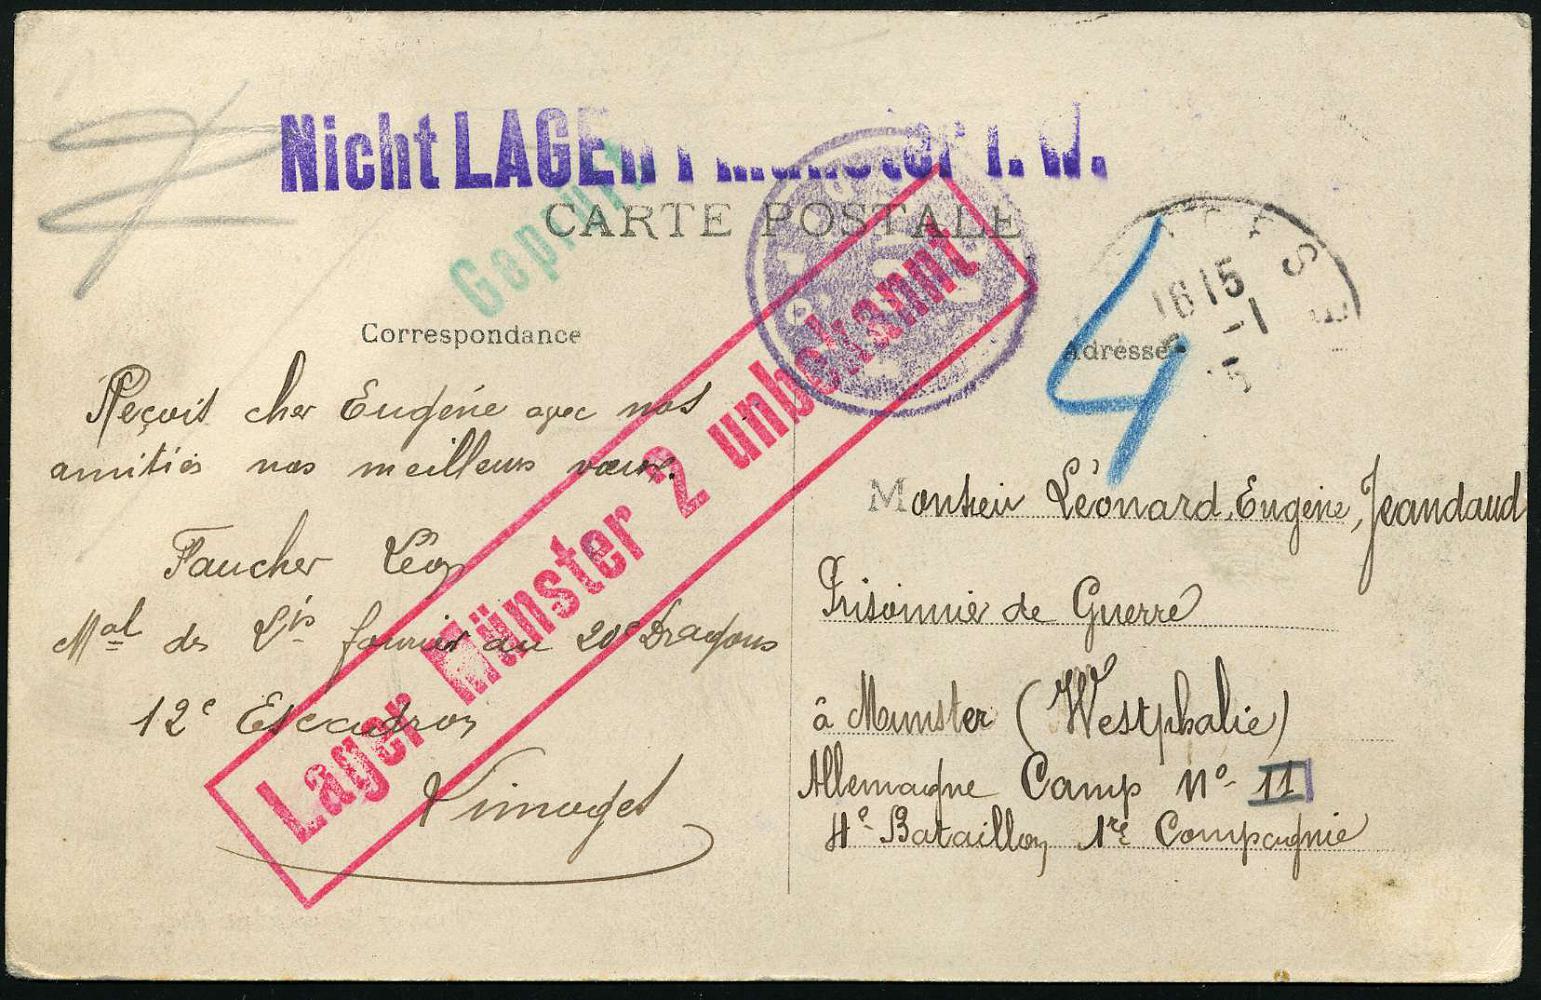 Nicht LAGER I Münster i. W.
Geprüft
CARTE POSTALE
Lager Münster 2 unbekannt
16 15
-1
4
Correspondance
Adresse
Reçoit cher Eugénie avec nos
amitiés nos meilleurs vœux.
Faucher Léon
Mal des Lis fourrier au 20e Dragons
12e Escadron
Limoges
Monsieur Léonard, Eugène, Jeandaud
Prisonnier de Guerre
à Munster (Westphalie)
Allemagne Camp No 11
4e Bataillon 1re Compagnie